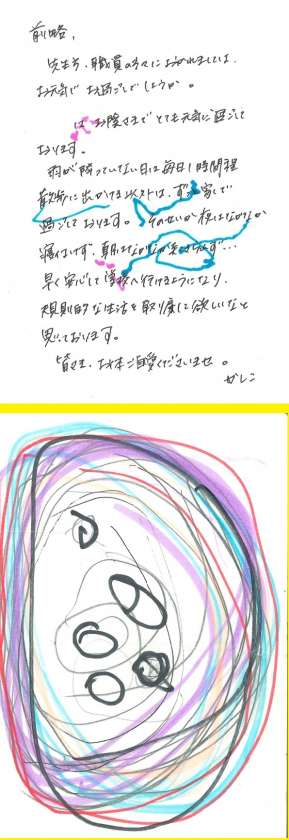 前略、
先生方、職員の方々におかれましては、
お元気でお過ごしでしょうか。
は お陰さまでとても元気に過ごして
おります。
雨が降っていない日は毎日1時間程
散歩に出かける以外は、ずっと家で
過ごしております。そのせいか夜はなかなか
寝つけず、朝はなかなか起きられず…
早く安心して学校へ行けるようになり、
規則的な生活を取り戻して欲しいなと
思っております。
皆さま、お体ご自愛くださいませ。
かしこ